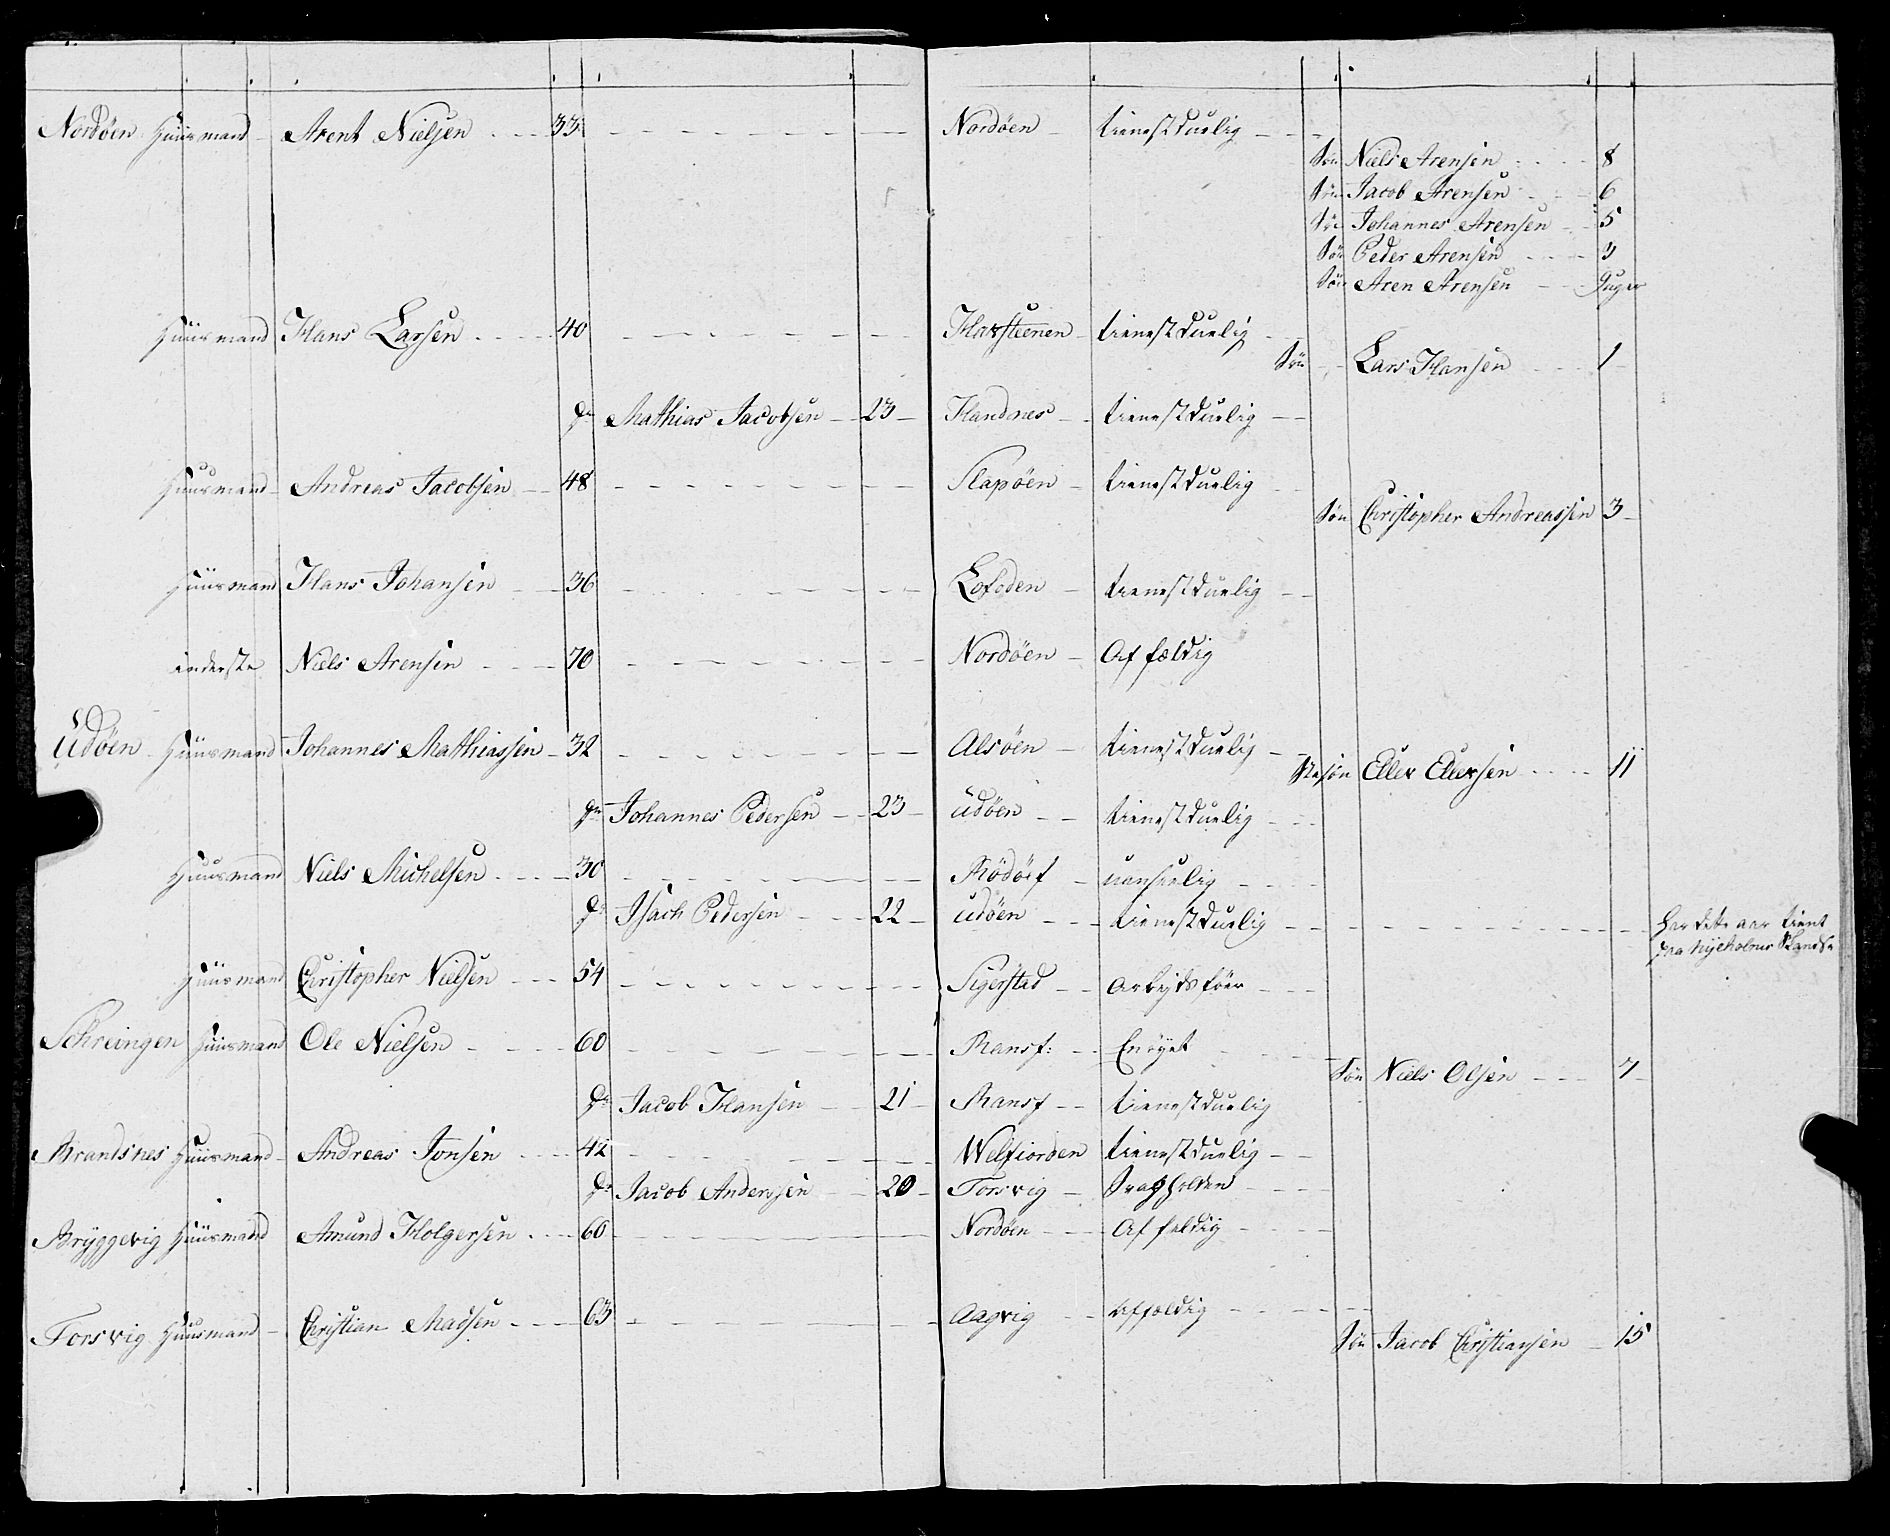 Nordöen Huusmand Arent Nielsen 33 Nordöen tienestduelig
Sön Niels Arensen 8
Sön Jacob Arensen 6
Sön Johannes Arensen 5
Sön Peder Arensen 3
Sön Aren Arensen 9uger
Huusmand Hans Larsen 40 tienestduelig
Sön Lars Hansen 1
Mathias Jacobsen 23 Handnes tienestduelig
Huusmand Andreas Jacobsen 48 Slapöen tienestduelig
Sön Christopher Andreassen 3
Huusmand Hans Johansen 36 Lofoden tienestduelig
inderste Niels Arensen 70 Nordöen Affældig
Udöen Huusmand Johannes Mathiassen 32 Alsöen tienestduelig
Stesön Eller Ellersen 11
Johannes Pedersen 23 Udöen tienestduelig
Huusmand Niels Michelsen 30 Rödöef uanseelig
Isach Pedersen 22 Udöen tienestduelig Har dette aar tient
paa Nyeholms Skandse
Huusmand Christopher Nielsen 54 Sigerstad Arbeydsföer
Schreingen Huusmand Ole Nielsen 60 Ransf: Enöyet
Sön Niels Olsen 7
Jacob Hansen 21 Ransf tienestduelig
Brandsnes Huusmand Andreas Jonsen 42 Welfiorden tienestduelig
Jacob Anderssen 20 Forsvig
Bryggevig Huusmand Amund Holgersen 60 Nordöen Affeldig
Forsvig Huusmand Christian Madsen 63 Aagvig Affældig
Sön Jacob Christiansen 15